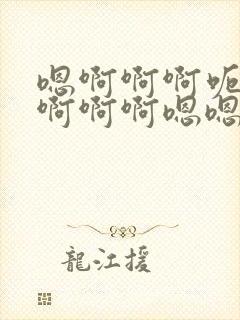 嗯啊啊啊呃
啊啊啊嗯嗯
龍江援